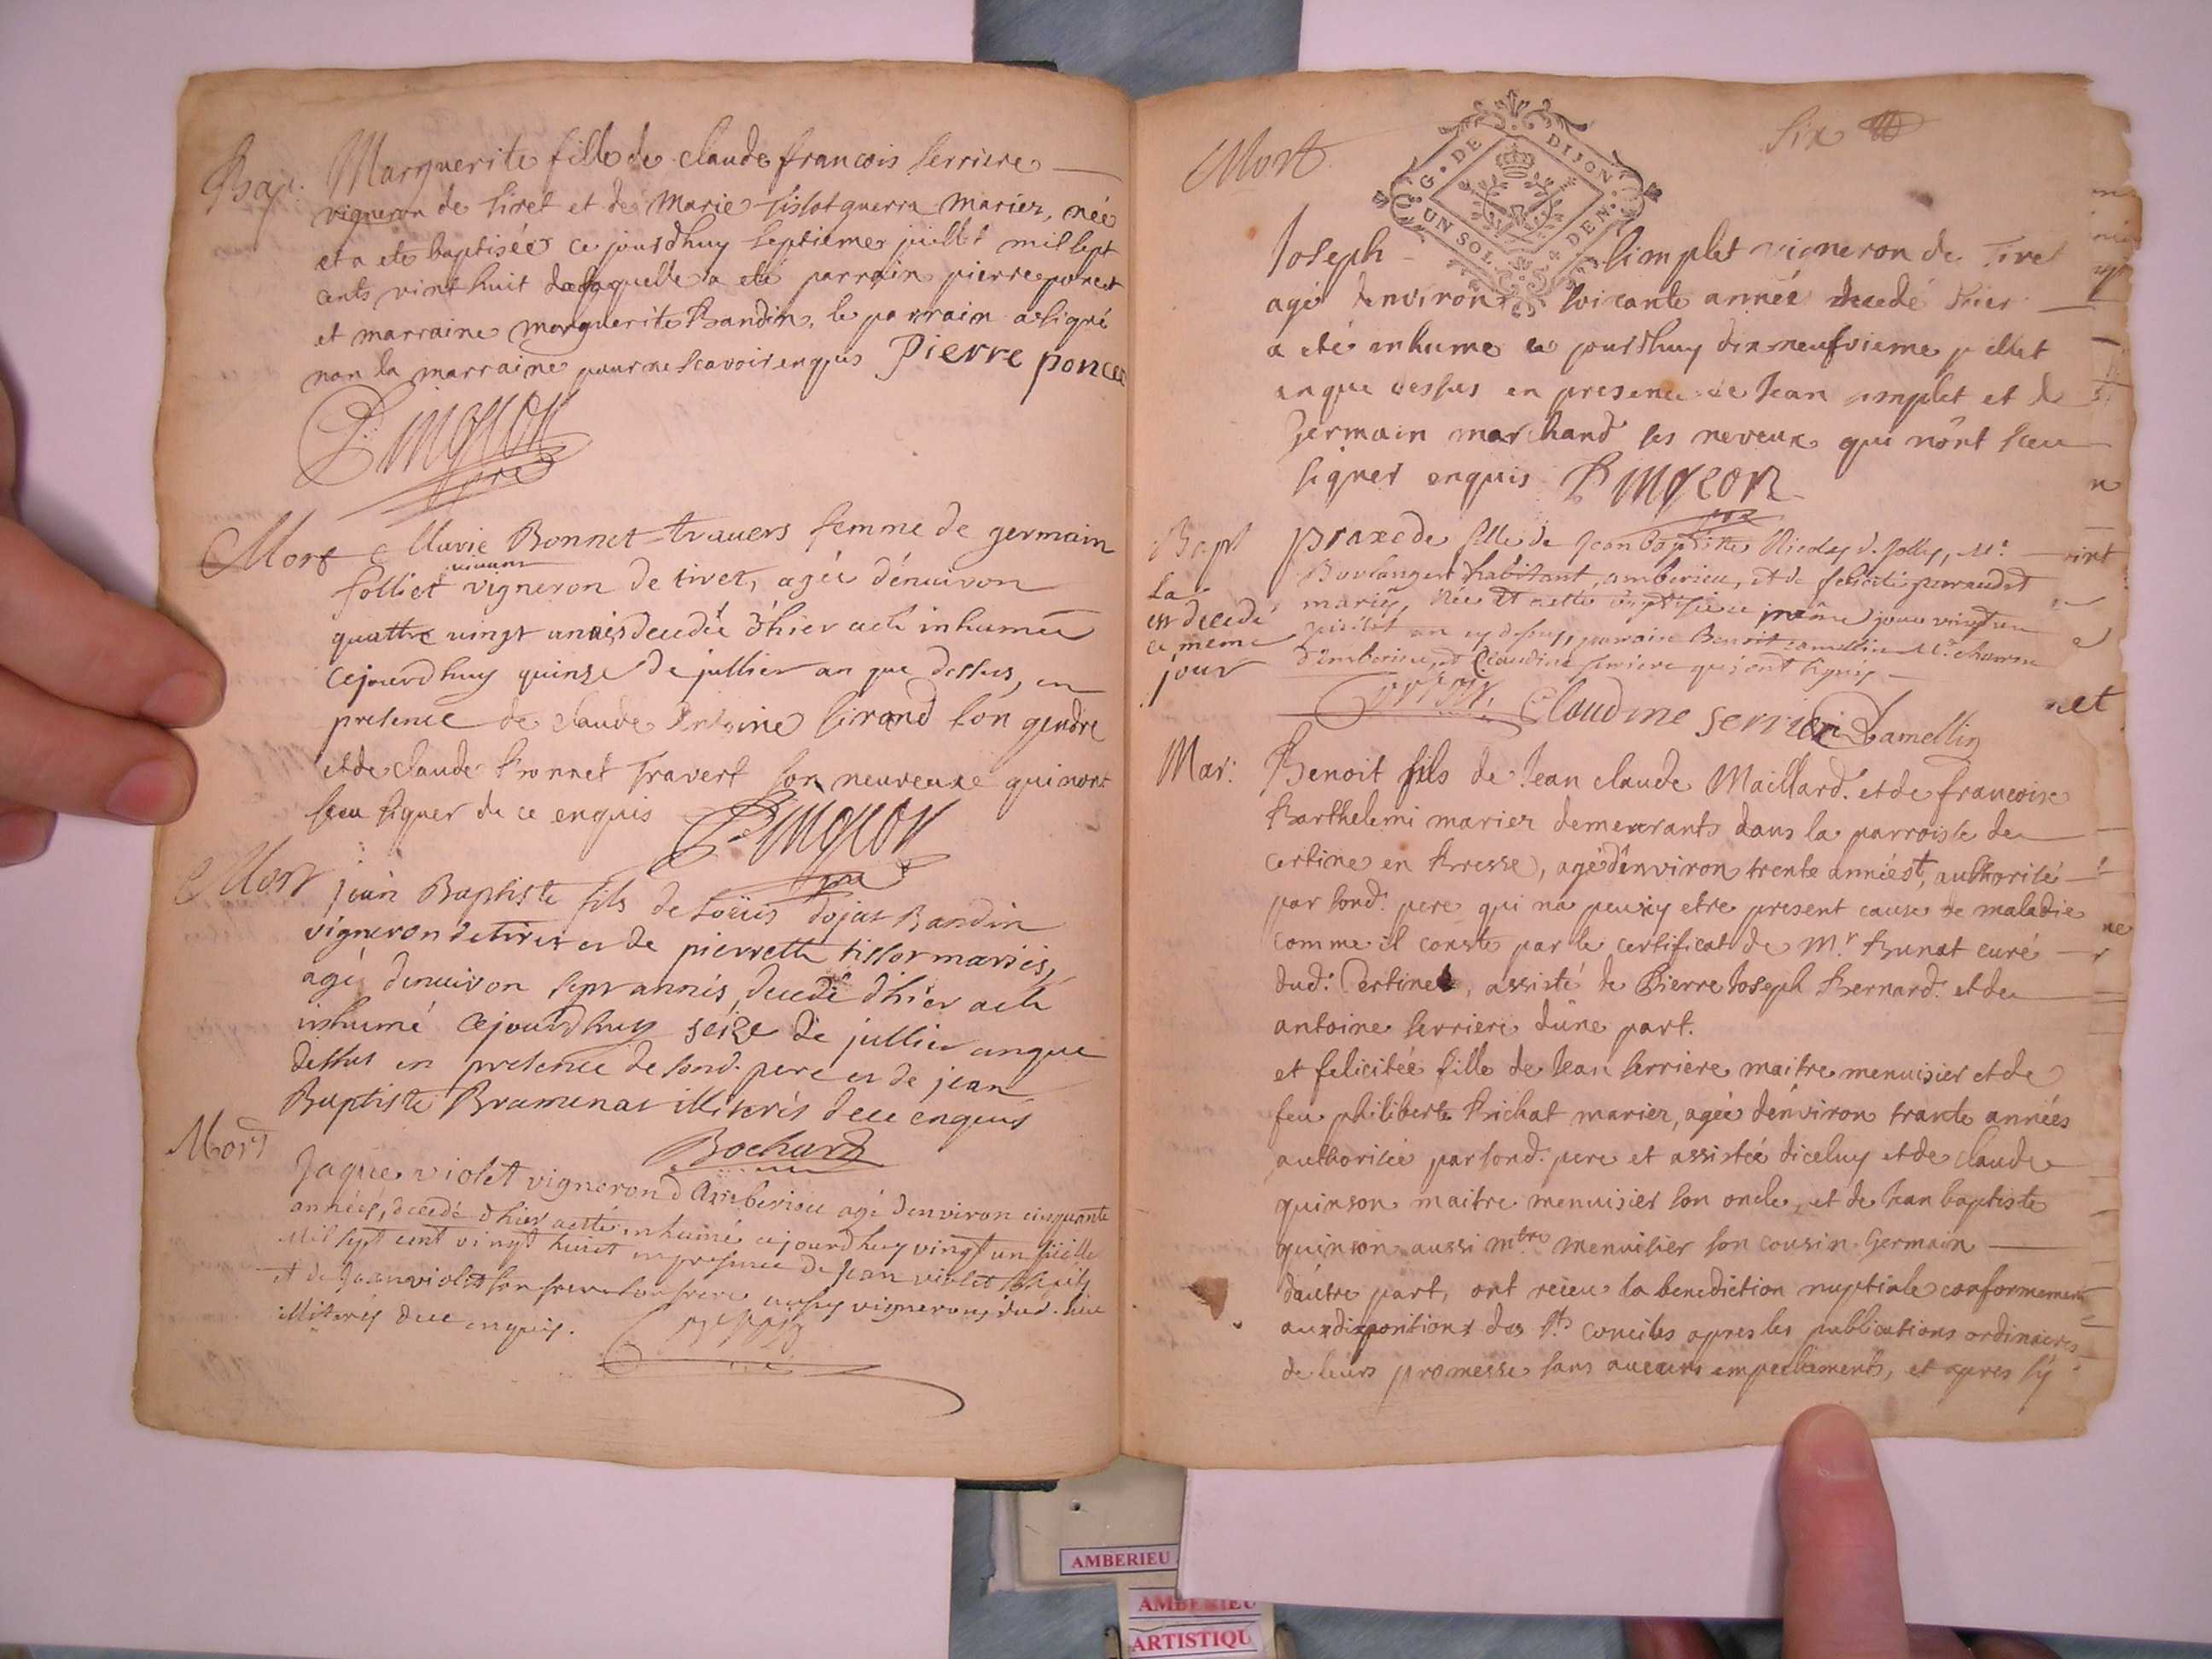 Bap: Marguerite fille de claude francois serriere
vigneron de tiret et de Marie tissot guerra mariez, née
et a eté baptisée ce jourdhuy septieme juillet mil sept
cents vint huit de laquelle a eté parrain pierre poncet
et marraine marguerite Bandin, le parrain a signé
non la marraine pour ne scavoir enquis Pierre poncet
Pingeon
pre
Mort Marie Bonnet travers femme de germain
vivant
folliet vigneron de tiret, agée d'enuiron
quattre vingt années decedée d'hier a eté inhumée
cejourdhuy quinze de jullier an que dessus, en
presence de claude antoine sirand son gendre
et de claude Bonnet Travert son neuveux qui nont
sceu signer de ce enquis Pingeon
pre
Mort jean Baptiste fils de Loüis dojat Bandin
vigneron de tiret et de pierrette tissot mariés,
agé denuiron sept années, decedé d'hier a eté
inhumé cejourdhuy seize de jullier an que
dessus en presence de sond. pere et de jean
Baptiste Bramenas illiterés de ce enquis
Bochard
Mort Jaque violet vigneron d'Amberieu agé denviron cinquante
années, decedé d'hier a esté inhumé cejourdhuy vingt un juillet
Mil sept cent vingt huict en presence de Jean violet son fils
et de Jean violet son frere aussy vignerons dud. lieu
illiterés de ce enquis.
Mort six
G. DE DIJON
UN SOL DEN.
Joseph simplet vigneron de Tiret
agé d'environ soixante année decedé hier
a eté inhumé ce jourdhuy dix neufvieme juillet
an que dessus en presence de Jean simplet et de
Germain marchand ses neveux qui nônt sceu
signer enquis Pingeon
pre
Bapt Praxede fille de Jean baptiste Nicolas d. Jolly, Mr.
Boulanger habitant amberieu, et de felicité peraudet
La mariés, née et a esté baptisée ce même jour vingt un
est decedé juillet an cy dessus, parrain Benoit Lamellin
ce meme d'Amberieu, et Claudine serriere qui ont signés
jour
Claudine serriere Lamellin
Mar: Benoit fils de Jean claude Maillard. et de francoise
Barthelemi mariez demeurants dans la parroisse de
Certine en Bresse, agé d'environ trente années, authorisé
par sond. pere qui na peu icy etre present cause de maladie
comme il conste par le certificat de Mr. Bunat curé
dud. Certines, assisté de Pierre Joseph Bernard. et de
antoine serriere dune part.
et felicitée fille de Jean serriere maitre menuisier et de
feu philiberte Bichat mariez, agée d'environ trante années
authorisée par sond. pere et assistée diceluy et de claude
quinson maitre menuisier son oncle, et de Jean baptiste
quinson aussi mtre menuisier son cousin Germain
dautre part, ont receu la benediction nuptiale conformement
aux dispositions des Sts conciles apres les publications ordinaires
de leurs promesse sans aucuns empechements, et apres sy
AMBERIEU
AMBERIEU
ARTISTIQU